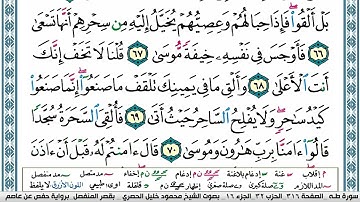 بَلْ أَلْقُوا۟ فَإِذَا حِبَالُهُمْ وَعِصِيُّهُمْ يُخَيَّلُ إِلَيْهِ مِن سِحْرِهِمْ أَنَّهَا تَسْعَىٰ
٦٦ فَأَوْجَسَ فِى نَفْسِهِۦ خِيفَةً مُّوسَىٰ ٦٧ قُلْنَا لَا تَخَفْ إِنَّكَ
أَنتَ ٱلْأَعْلَىٰ ٦٨ وَأَلْقِ مَا فِى يَمِينِكَ تَلْقَفْ مَا صَنَعُوٓا۟ إِنَّمَا صَنَعُوا۟
كَيْدُ سَٰحِرٍ وَلَا يُفْلِحُ ٱلسَّاحِرُ حَيْثُ أَتَىٰ ٦٩ فَأُلْقِىَ ٱلسَّحَرَةُ سُجَّدًا
قَالُوٓا۟ ءَامَنَّا بِرَبِّ هَٰرُونَ وَمُوسَىٰ ٧٠ قَالَ ءَامَنتُمْ لَهُۥ قَبْلَ أَنْ ءَاذَنَ
سورة طه الصفحة ٣١٦ الحزب ٣٢ الجزء ١٦ بصوت الشيخ محمود خليل الحصري بقصر المنفصل برواية حفص عن عاصم